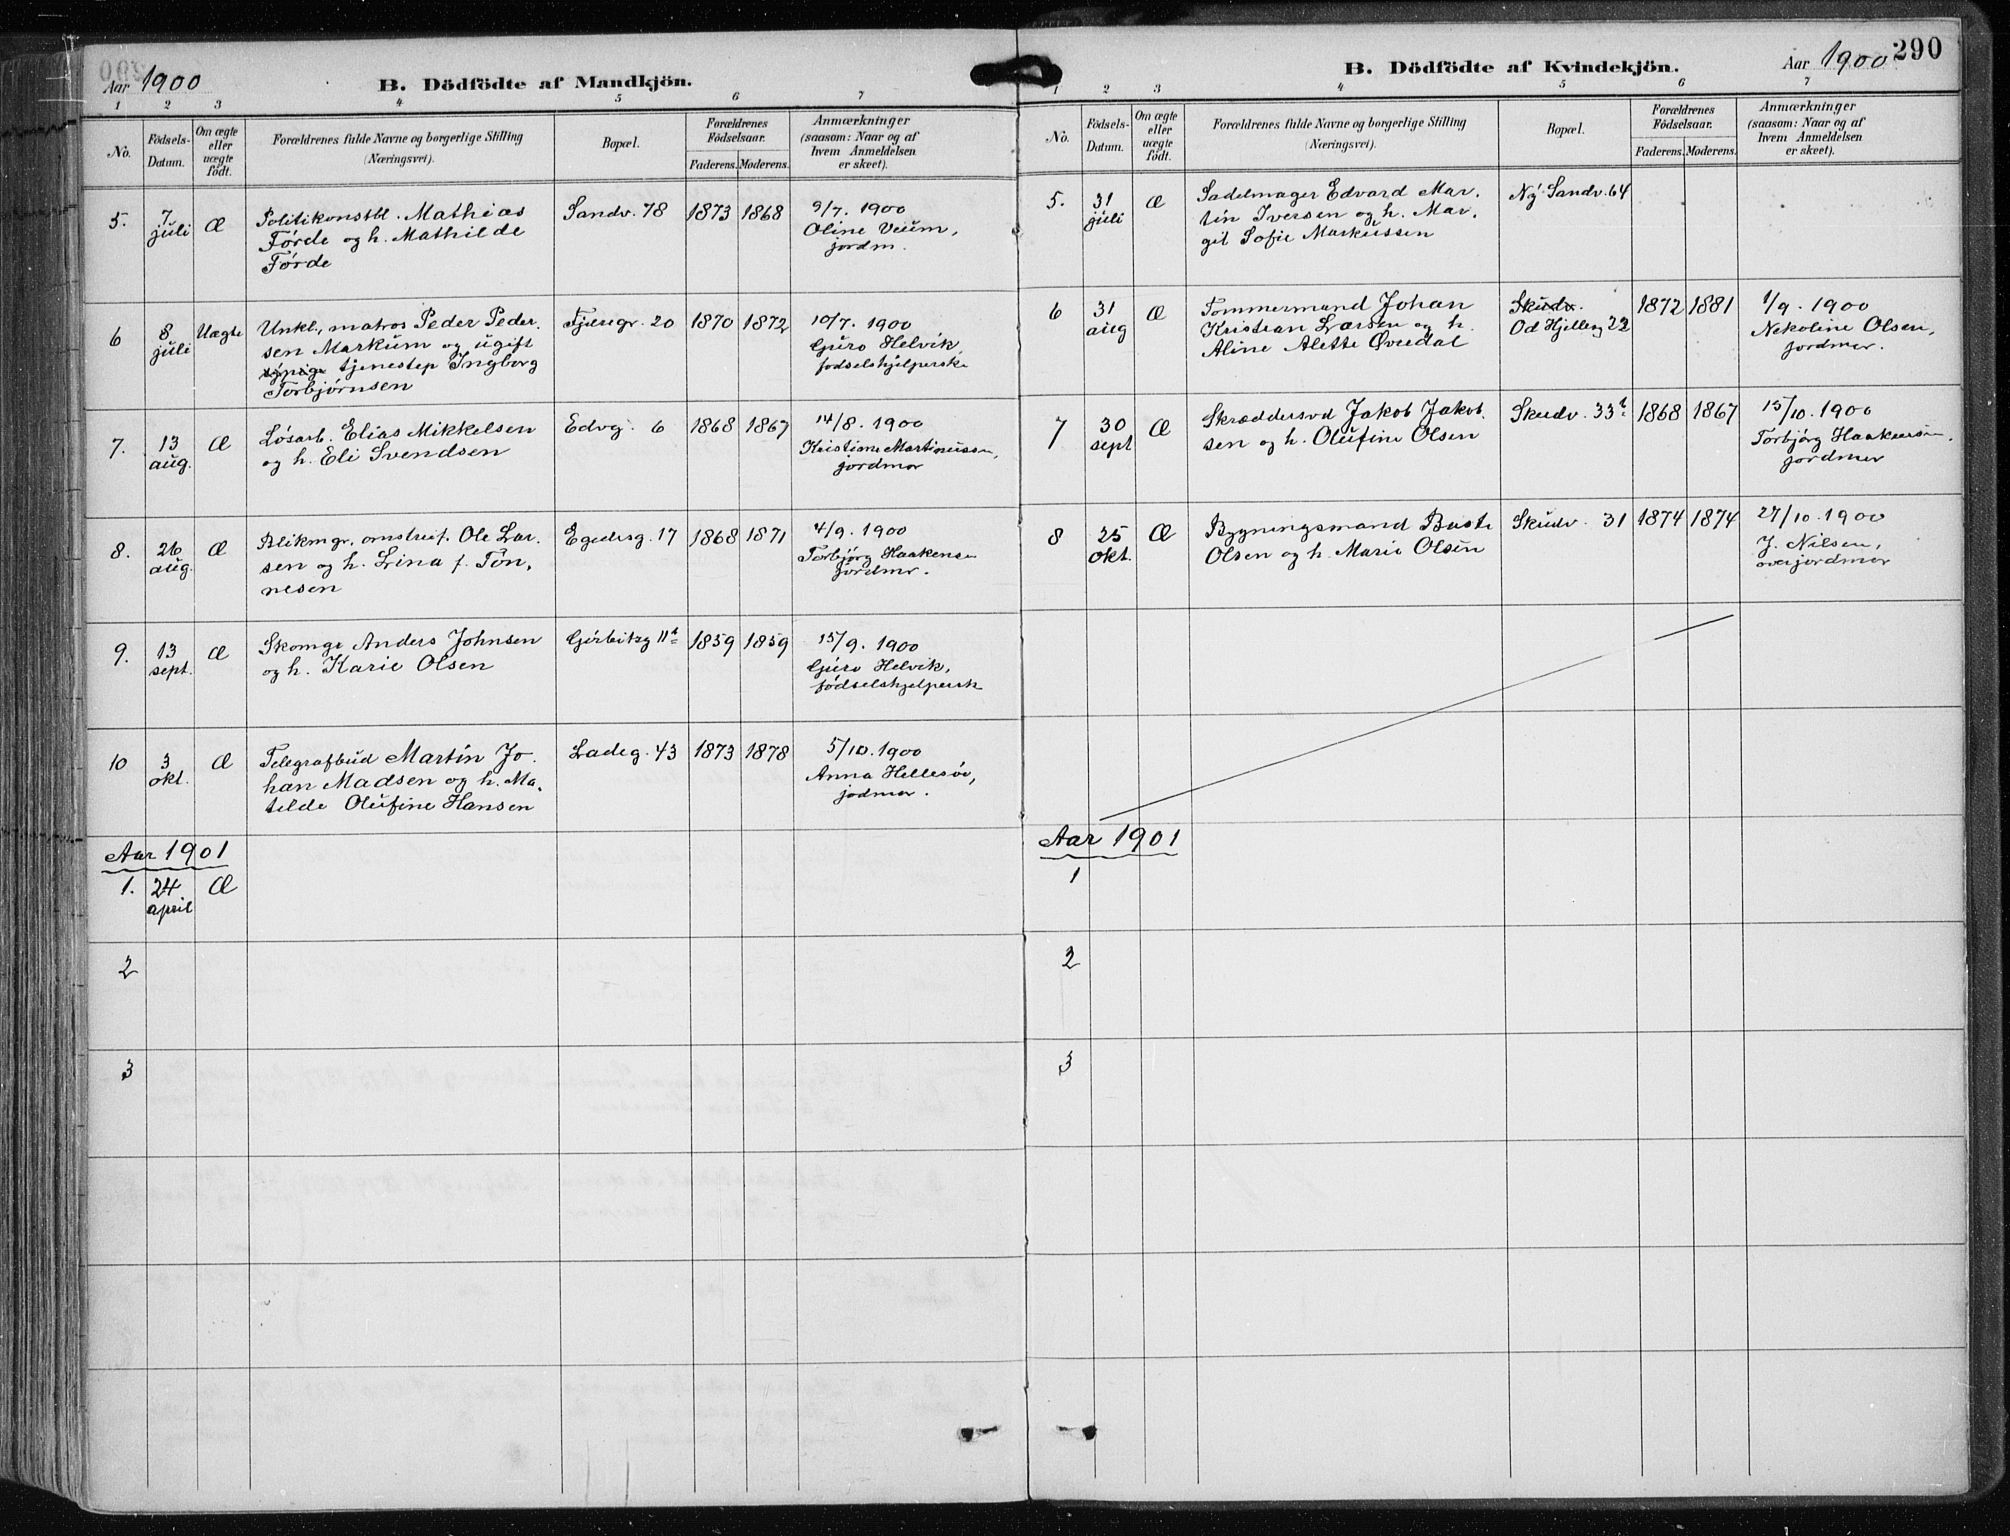 Aar 1900
B. Dödfödte af Mandkjön.
1 2 3 4 5 6 7
No.
Födsels-
Datum.
Om ægte
eller
uægte
födt.
Forældrenes fulde Navne og borgerlige Stilling
(Næringsvei).
Bopæl.
Forældrenes
Födselsaar.
Faderens. Moderens.
Anmærkninger
(saasom: Naar og af
hvem Anmeldelsen
er skeet).
5. 7 juli Æ
Politikonstbl. Mathias
Førde og h. Mathilde
Førde
Sandv. 78 1873 1868
9/7. 1900
Oline Veum,
jordm.
6 8 juli Uægte
Unkl., matros Peder Peder-
sen Markum og ugift
tjenestep Ingborg
Torbjørnsen
Fjæregr. 20 1870 1872
10/7. 1900
Guro Helvik,
fodselshjelpersk
7. 13 aug. Æ
Løsarb. Elias Mikkelsen
og h. Eli Svendsen
Edvg. 6 1868 1867
14/8. 1900
Kristiane Martinussen,
jordmor
8. 26 aug. Æ
Blikmgr. omstreif. Ole Lar-
sen og h. Lina f. Tøn-
nesen
Egedesg. 17 1868 1871
4/9. 1900
Torbjørg Haakensen
jordmr.
9. 13 sept. Æ
Skomgr Anders Johnsen
og h. Karie Olsen
Gørbitzg 11b 1859 1859
15/9. 1900
Guro Helvik,
fødselshjelpersk
10 3 okt. Æ
Telegrafbud Martin Jo-
han Madsen og h. Ma-
tilde Olufine Hansen
Ladeg. 43 1873 1878
5/10. 1900
Anna Hellesøe,
jodmor.
Aar 1901
1. 24 april Æ
2
3
290
B. Dödfödte af Kvindekjön.
Aar 1900
1 2 3 4 5 6 7
No.
Födsels-
Datum.
Om ægte
eller
uægte
födt.
Forældrenes fulde Navne og borgerlige Stilling
(Næringsvei).
Bopæl.
Forældrenes
Födselsaar.
Faderens. Moderens.
Anmærkninger
(saasom: Naar og af
hvem Anmeldelsen
er skeet).
5. 31 juli Æ
Sadelmager Edvard Mar-
tin Iversen og h. Mar-
git Sofie Markussen
Ny Sandv. 64
6 31 aug Æ
Tømmermand Johan
Kristian Larsen og h.
Aline Alette Øvredal
Skudv.
Od Hjelleg 22 1872 1881
1/9. 1900
Nekoline Olsen,
jordmor.
7 30 sept Æ
Skræddersvd Jakob Jakob-
sen og h. Olufine Olsen
Skudv. 33b 1868 1867
15/10. 1900
Torbjørg Haakensen.
jordmor
8 25 okt. Æ
Bygningsmand
Olsen og h. Marie Olsen
Skudv. 31 1874 1874
27/10. 1900
J. Nilsen,
overjordmor
Aar 1901
1
2
3